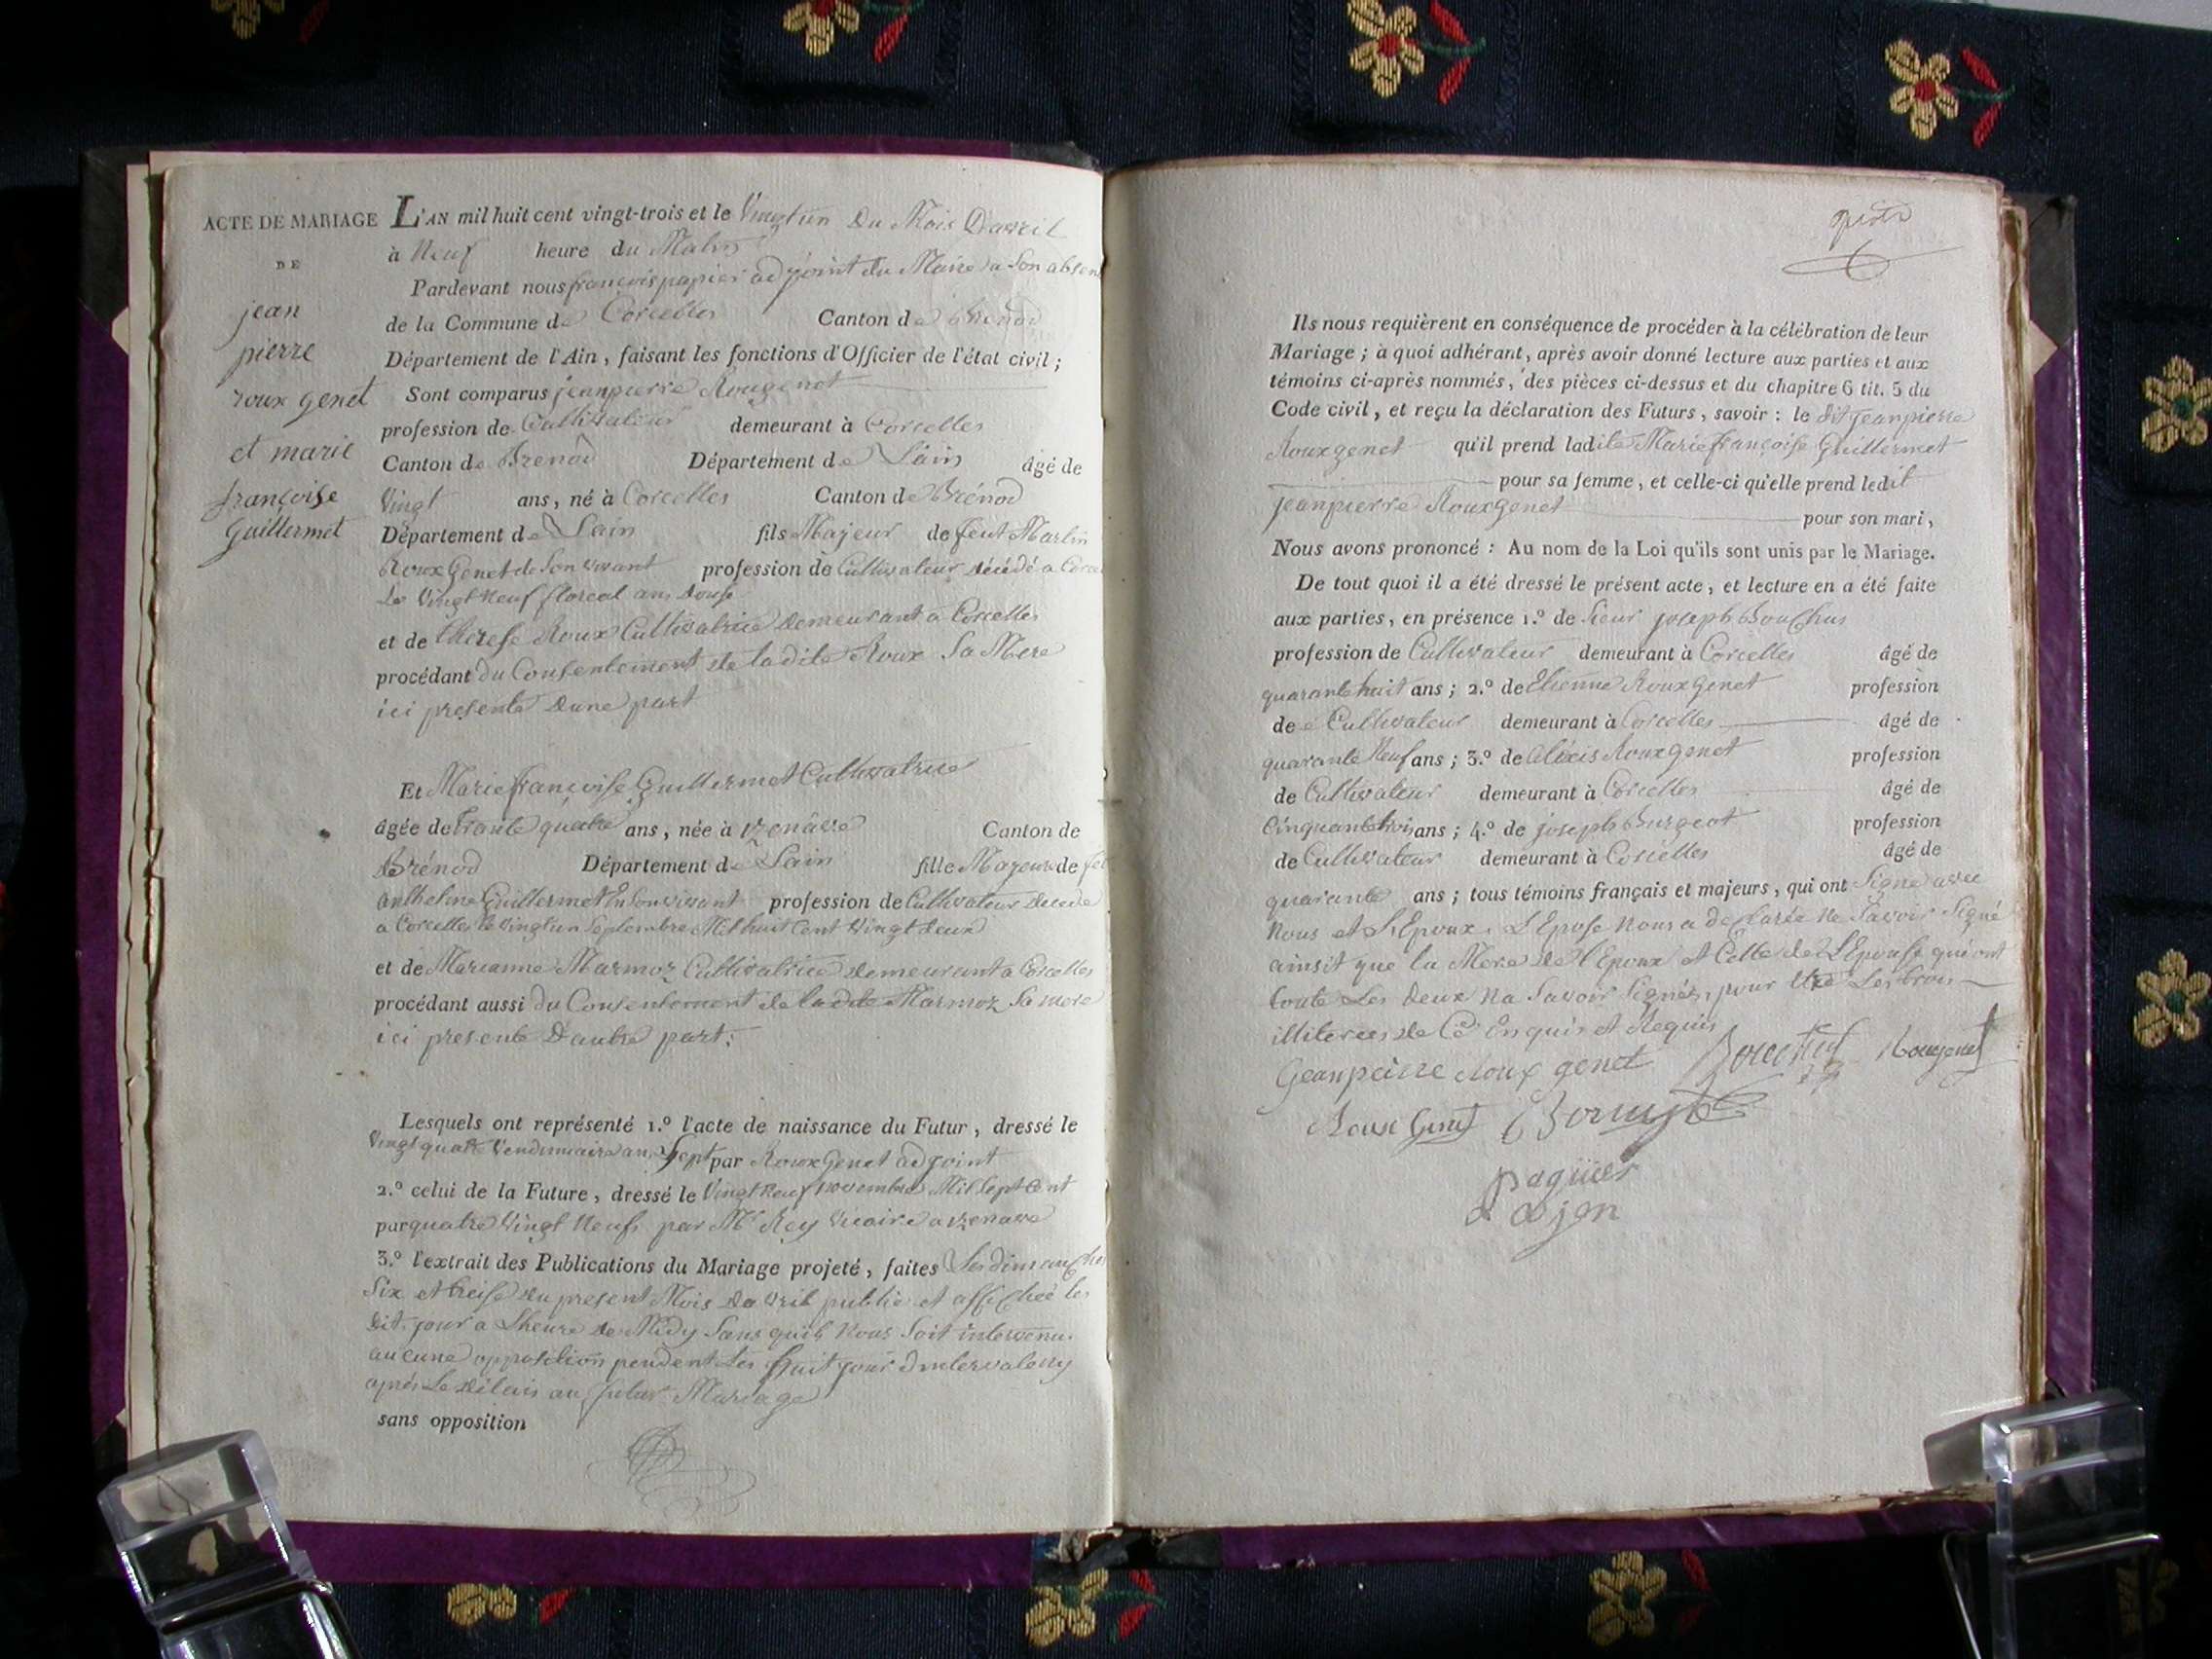 ACTE DE MARIAGE
DE
jean
pierre
roux genet
et marie
françoise
Guillermet
L'AN mil huit cent vingt-trois et le Vingt un du Mois Davril
à Neuf heure du Matin
Pardevant nous françois papier adjoint du Maire a Son absen
de la Commune de Corcelles Canton de Brénod
Département de l'Ain, faisant les fonctions d'Officier de l'état civil;
Sont comparus jeanpierre Rougenet
profession de Cultivateur demeurant à Corcelles
Canton de Brénod Département de Lain âgé de
Vingt ans, né à Corcelles Canton de Brénod
Département de Lain fils Majeur de feut Martin
Roux Genet de Son vivant profession de Cultivateur décédé a Corce
Le Vingt Neuf floreal an douse
et de therese Roux Cultivatrice demeurant a Corcelles
procédant du Consentement de ladite Roux Sa Mere
ici presente dune part
Et Marie françoise Guillermet Cultivatrice
âgée de trante quatre ans, née à Canton de
Brénod Département de Lain fille Majeure de feu
anthelme Guillermet En Son vivant profession de Cultivateur decede
a Corcelles le vingt un Septembre Mil huit Cent Vingt deux
et de Marianne Marmoz Cultivatrice demeurant a Corcelles
procédant aussi du Consentement de ladite Marmoz Sa mere
ici presente Dautre part;
Lesquels ont représenté 1.º l'acte de naissance du Futur, dressé le
Vingt quatre Vendimiaire an Sept par Roux Genet adjoint
2.º celui de la Future, dressé le Vingt Neuf novembre Mil Sept Cent
par quatre Vingt Neuf par Mr Rey Vicaire a
3.º l'extrait des Publications du Mariage projeté, faites Les dimanches
Six et treise du present Mois Davril publie et affichée les
dit jour a Lheure de Midy Sans quil Nous Soit intervenu
aucune opposition pendent Les huit jour
après Le délais au futur Mariage
sans opposition
Ils nous requièrent en conséquence de procéder à la célébration de leur
Mariage; à quoi adhérant, après avoir donné lecture aux parties et aux
témoins ci-après nommés, des pièces ci-dessus et du chapitre 6 tit. 5 du
Code civil, et reçu la déclaration des Futurs, savoir: le dit jeanpierre
Rouxgenet qu'il prend ladite Marie françoise Guillermet
pour sa femme, et celle-ci qu'elle prend ledit
jeanpierre Rouxgenet pour son mari,
Nous avons prononcé: Au nom de la Loi qu'ils sont unis par le Mariage.
De tout quoi il a été dressé le présent acte, et lecture en a été faite
aux parties, en présence 1.º de Sieur joseph Bouchus
profession de Cultivateur demeurant à Corcelles âgé de
quarante huit ans; 2.º de Etienne Roux genet profession
de Cultivateur demeurant à Corcelles âgé de
quarante Neuf ans; 3.º de alexis Rouxgenet profession
de Cultivateur demeurant à Corcelles âgé de
Cinquante trois ans; 4.º de joseph Burgeot profession
de Cultivateur demeurant à Corcelles âgé de
quarante ans; tous témoins français et majeurs, qui ont Signe avec
Nous et LEpoux. LEpose Nous a declarée ne Savoir Signé
ainsit que la Mere de lEpoux et Celle de LEpouse qui ont
toute Les deux Na Savoir Signée, pour
illiterees de Ce Enquis et Requis
Geanpeirre Roux genet Rougenet
Roux Genet
paguier
adjon